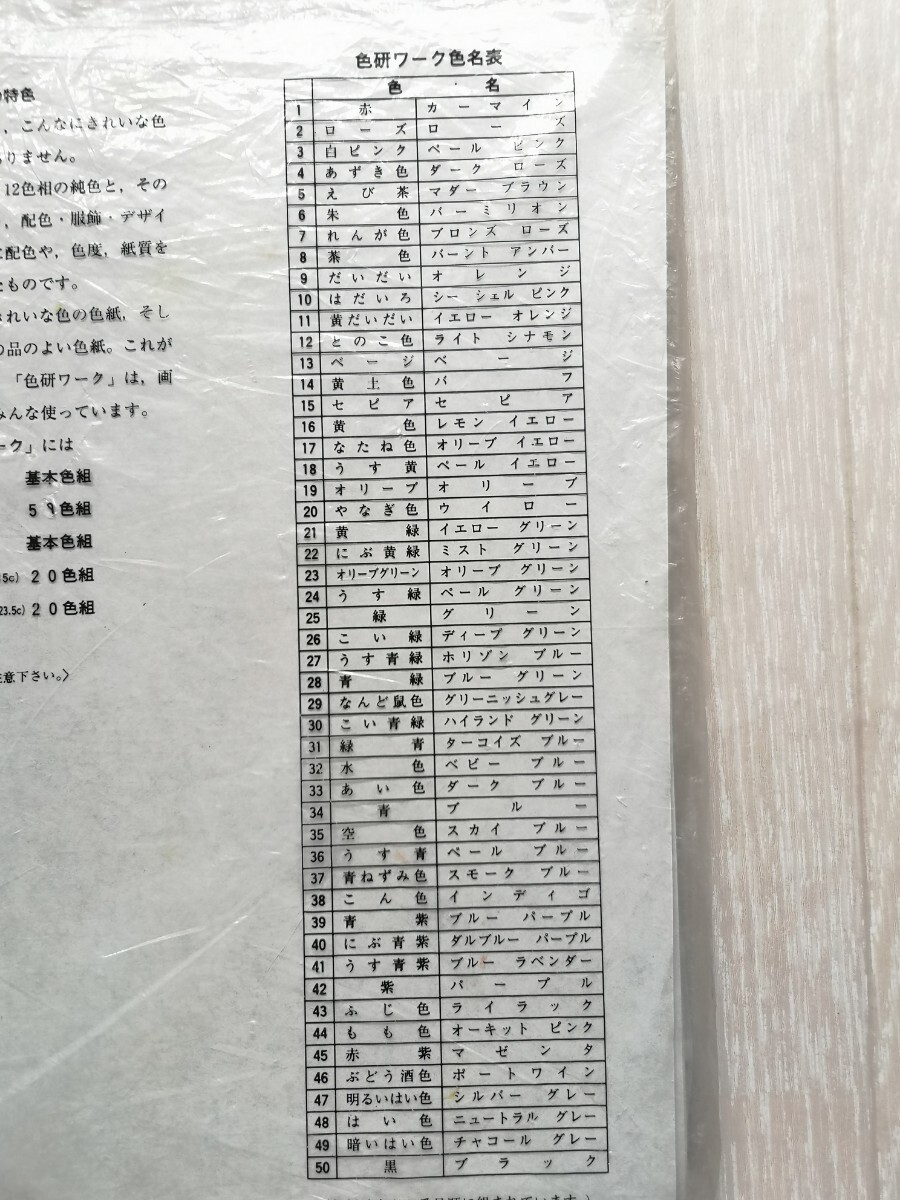 の特色
，こんなにきれいな色
ありません。
12色相の純色と，その
，配色・服飾・デザイ
配色や，色度，紙質を
たものです。
きれいな色の色紙，そし
の品のよい色紙。これが
「色研ワーク」は，画
みんな使っています。
ーク」には
基本色組
59色組
基本色組
5c) 20色組
23.5c) 20色組
意下さい。〉
色研ワーク色名表
色・名
1 赤 カーマイン
2 ローズ ローズ
3 白ピンク ペール ピンク
4 あずき色 ダーク ローズ
5 えび茶 マダー ブラウン
6 朱色 バーミリオン
7 れんが色 ブロンズ ローズ
8 茶色 バーント アンバー
9 だいだい オレンジ
10 はだいろ シー シェル ピンク
11 黄だいだい イエロー オレンジ
12 とのこ色 ライト シナモン
13 ベージ ベージ
14 黄土色 バフ
15 セピア セピア
16 黄色 レモン イエロー
17 なたね色 オリーブ イエロー
18 うす黄 ペール イエロー
19 オリーブ オリーブ
20 やなぎ色 ウイロー
21 黄緑 イエロー グリーン
22 にぶ黄緑 ミスト グリーン
23 オリーブグリーン オリーブ グリーン
24 うす緑 ペール グリーン
25 緑 グリーン
26 こい緑 ディープ グリーン
27 うす青緑 ホリゾン ブルー
28 青緑 ブルー グリーン
29 なんど鼠色 グリーニッシュグレー
30 こい青緑 ハイランド グリーン
31 緑青 ターコイズ ブルー
32 水色 ベビー ブルー
33 あい色 ダーク ブルー
34 青 ブルー
35 空色 スカイ ブルー
36 うす青 ペール ブルー
37 青ねずみ色 スモーク ブルー
38 こん色 インディゴ
39 青紫 ブルー パープル
40 にぶ青紫 ダルブルー パープル
41 うす青紫 ブルー ラベンダー
42 紫 パープル
43 ふじ色 ライラック
44 もも色 オーキット ピンク
45 赤紫 マゼンタ
46 ぶどう酒色 ポートワイン
47 明るいはい色 シルバー グレー
48 はい色 ニュートラル グレー
49 暗いはい色 チャコール グレー
50 黒 ブラック